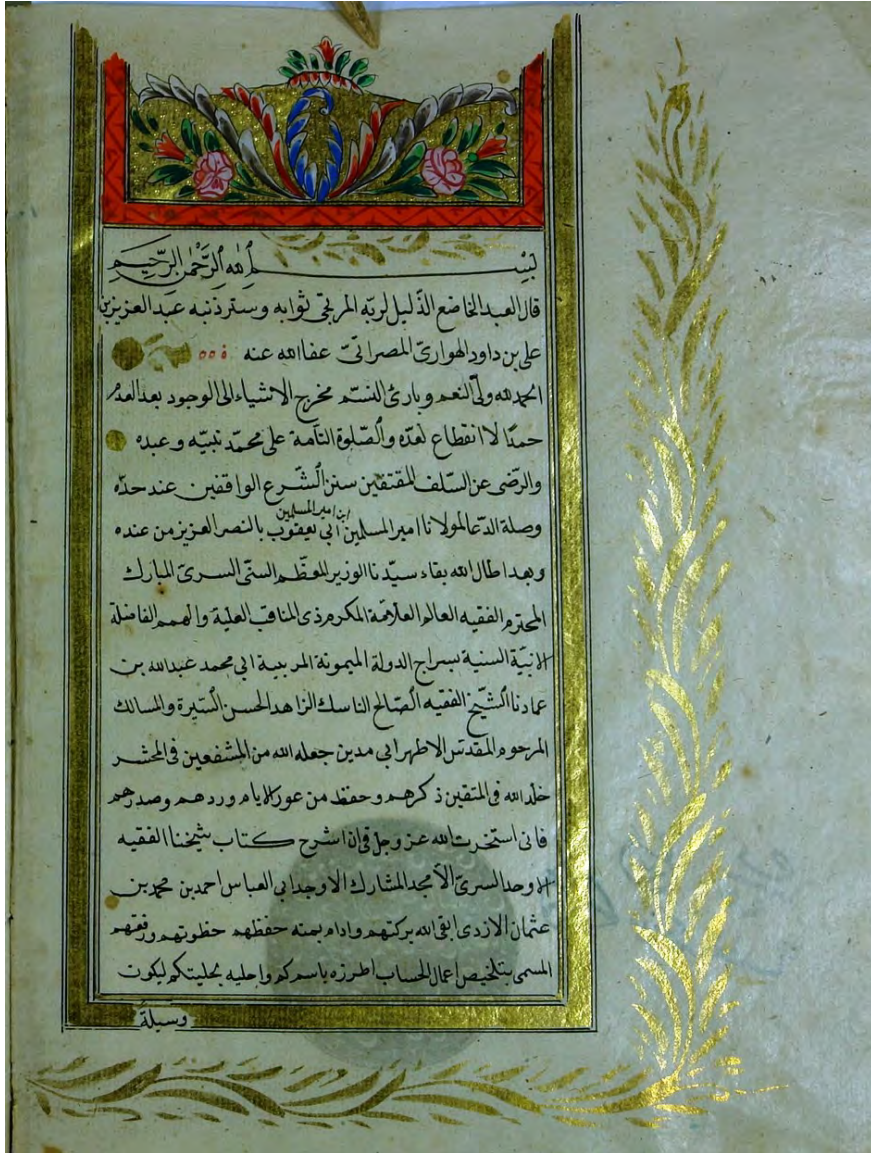 بسم الله الرحمن الرحيم
قال العبد الخاضع الذليل لربه المرتجى ثوابه وستر ذنبه عبد العزيز بن
على بن داود الهوارىّ المصراتىّ عفا الله عنه
الحمد لله ولىّ النعم وبارئ النسم مخرج الاشياء الى الوجود بعد العدم
حمدًا لا انقطاع لعدّه والصّلوة التامة على محمّد نبيّه وعبده
والرّضى عن السّلف المقتفين سنن الشّرع الواقفين عند حدّه
وصلة الدّعا لمولانا امير المسلمين ابن امير المسلمين ابى يعقوب بالنصر العزيز من عنده
وبعد اطال الله بقاء سيّدنا الوزير المعظّم السنّى السرىّ المبارك
المحترم الفقيه العالم العلامّة المكرم ذى المناقب العلية والهمم الفاضلة
الانيّة السنية بسراج الدولة الميمونة المرينية ابى محمد عبد الله بن
عمادنا الشّيخ الفقيه الصّالح الناسك الزاهد الحسن السّيرة والمسالك
المرحوم المقدّس الاطهر ابى مدين جعله الله من المشفعين فى المحشر
خلّد الله فى المتقين ذكرهم وحفظ من عور الايام وردهم وصدرهم
فانى استخرت الله عز وجل فى ان اشرح كتاب شيخنا الفقيه
الاوحد السرىّ الأمجد المشارك الاوجد ابى العباس احمد بن محمد بن
عثمان الازدى ابقى الله بركتهم وادام بمنه حفظهم حظوتهم ورفقهم
المسمى بتلخيص اعمال الحساب اطرزه باسمكم واحليه بحليتكم ليكون
وسيلة